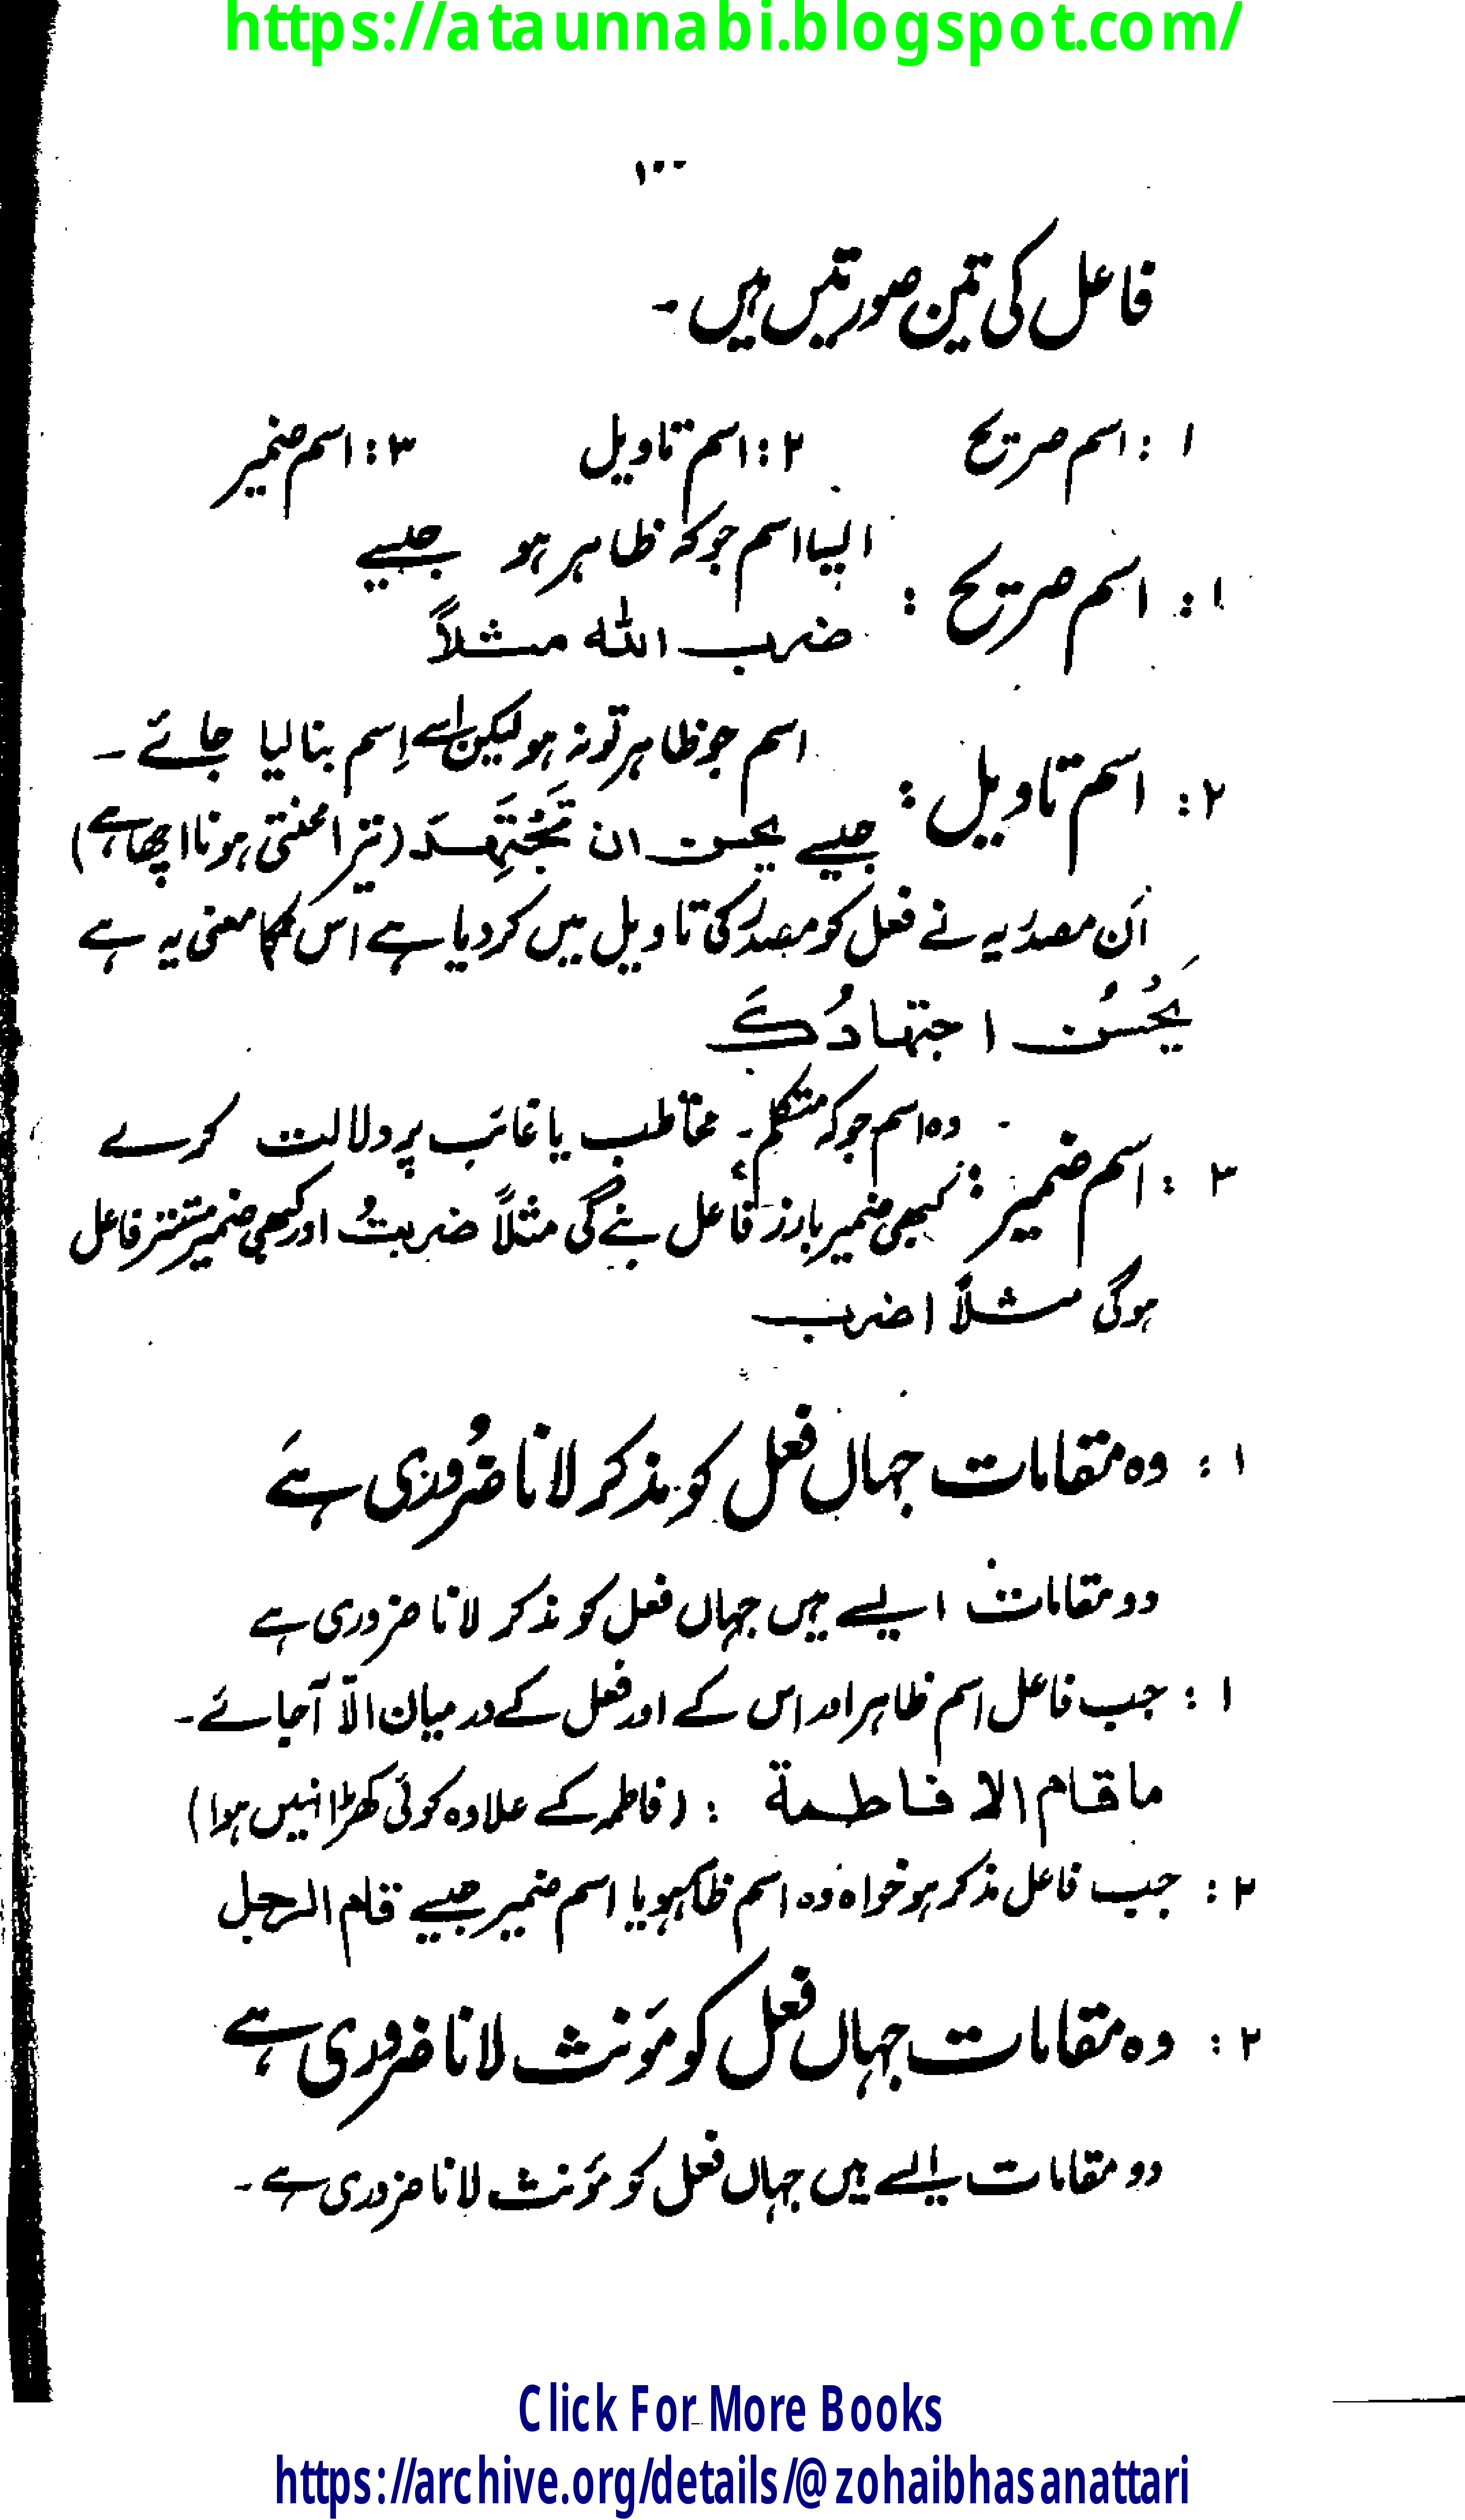 https://ataunnabi.blogspot.com/
فاعل کی تین صورتیں ہیں ۔
۱ : اسم صریح ۲ : اسم تاویل ۳ : اسم ضمیر
۱ : اسم صریح : ایسا اسم جو کہ ظاہر ہو جیسے
ضرب اللہ مثلاً
۲ : اسم تاویل : اسم جو ظاہر تو نہ ہو لیکن اسے اِسم بنا لیا جائے ۔
جیسے یحسن ان تَجْتَهِدَ (تیرا محنتی ہونا اچھا ہے)
اَن مصدریہ نے فعل کو مصدر کی تاویل میں کر دیا ہے اس کا معنی یہ ہے
یَحْسُن اجتهادُكَ
۳ : اسم ضمیر : وہ اسم جو کہ متکلم ۔ مخاطب یا غائب پر دلالت کرے
کبھی ضمیر بارز فاعل بنے گی مثلاً ضربتُ اور کبھی ضمیر مستتر فاعل
ہوگی مثلاً اضرب
۱ : وہ مقامات جہاں فعل کو مذکر لانا ضروری ہے
دو مقامات ایسے ہیں جہاں فعل کو مذکر لانا ضروری ہے
۱ : جب فاعل اسم ظاہر اور اس کے اور فعل کے درمیان الّا آجائے ۔
ما قام الا فاطمة : (فاطمہ کے علاوہ کوئی کھڑا نہیں ہوا)
۲ : جب فاعل مذکر ہو خواہ وہ اسم ظاہر ہو یا اسم ضمیر جیسے قام الرجل
۲ : وہ مقامات جہاں فعل کو مؤنث لانا ضروری ہے
دو مقامات ایسے ہیں جہاں فعل کو مؤنث لانا ضروری ہے ۔
Click For More Books
https://archive.org/details/@zohaibhasanattari